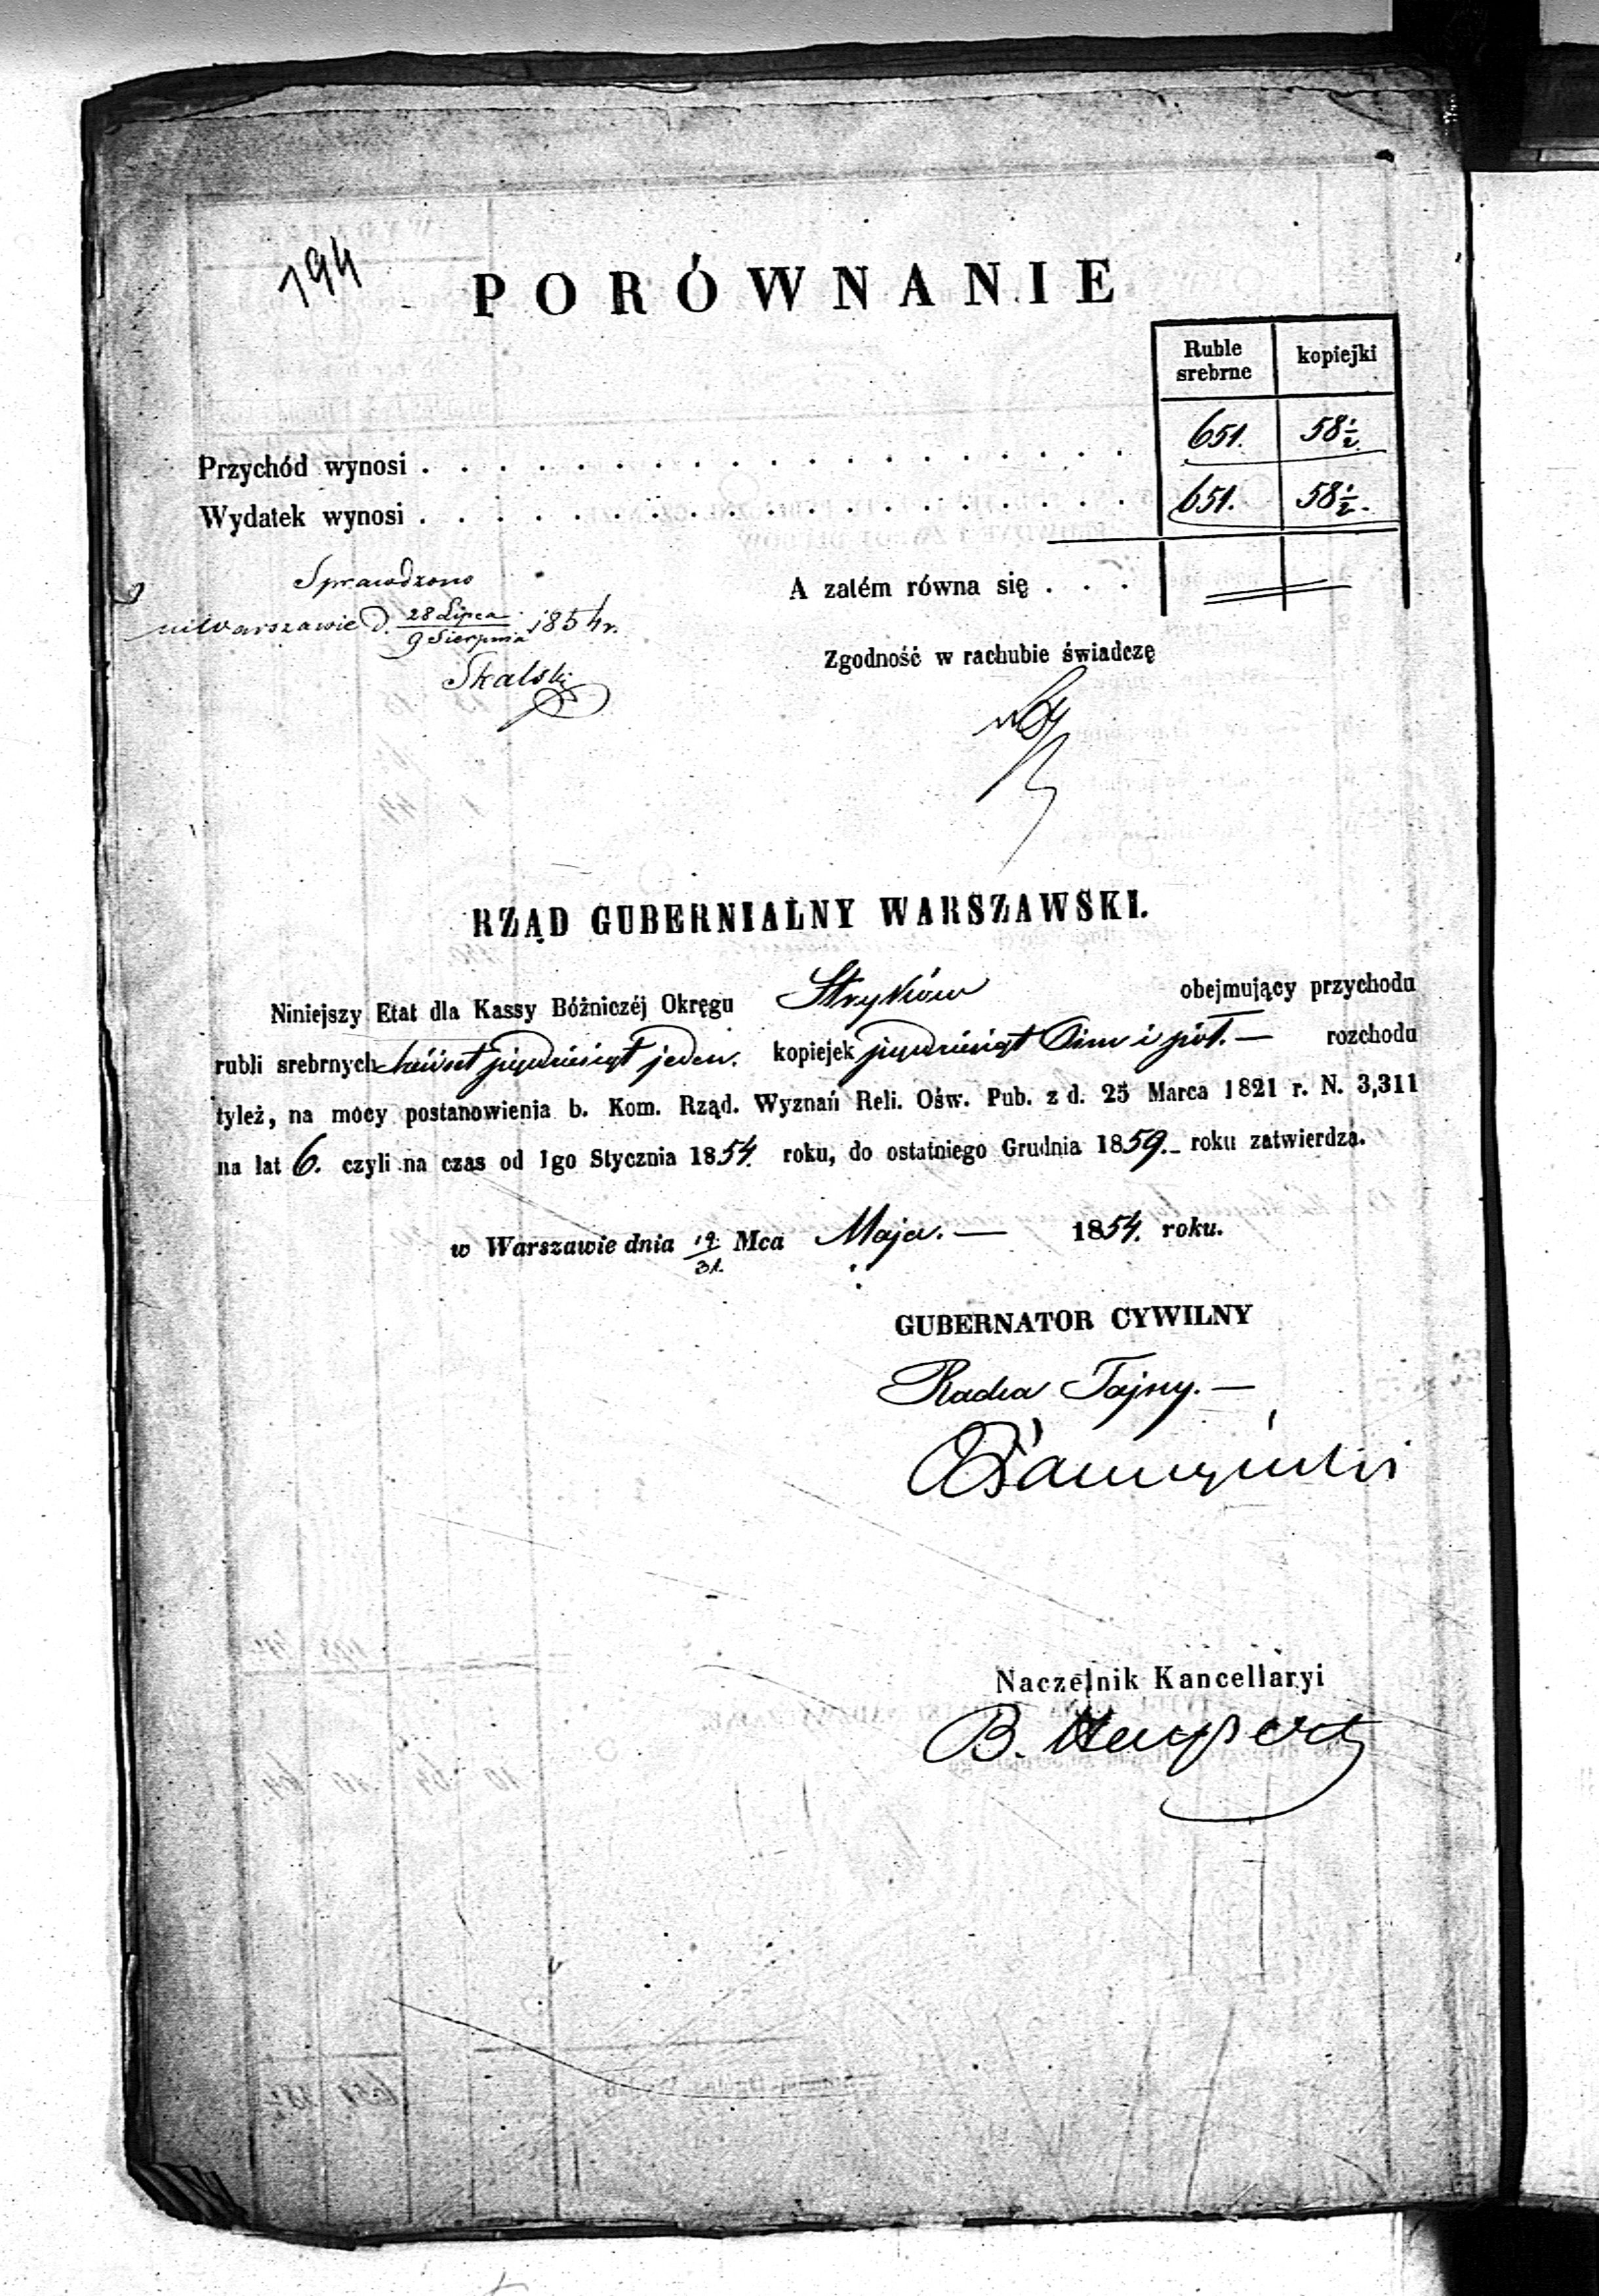 194
PORÓWNANIE
Ruble srebrne kopiejki
Przychód wynosi . . . . . . . . . . 651. 58 1/2
Wydatek wynosi . . . . . . . . . . 651. 58 1/2.
A zatém równa się . . .
Sprawdzono
w Warszawie d. 28 Lipca / 9 Sierpnia 1854 r.
Skalski
Zgodność w rachubie świadczę
RZĄD GUBERNIALNY WARSZAWSKI.
Niniejszy Etat dla Kassy Bóżniczéj Okręgu Stryków obejmujący przychodu
rubli srebrnych sześćset pięćdziesiąt jeden. kopiejek pięćdziesiąt ośm i pół. — rozchodu
tyleż, na mocy postanowienia b. Kom. Rząd. Wyznań Reli. Ośw. Pub. z d. 25 Marca 1821 r. N. 3,311
na lat 6. czyli na czas od 1go Stycznia 1854. roku, do ostatniego Grudnia 1859. roku zatwierdza.
w Warszawie dnia 19/31. Mca Maja. — 1854. roku.
GUBERNATOR CYWILNY
Radca Tajny. —
Naczelnik Kancellaryi
B.